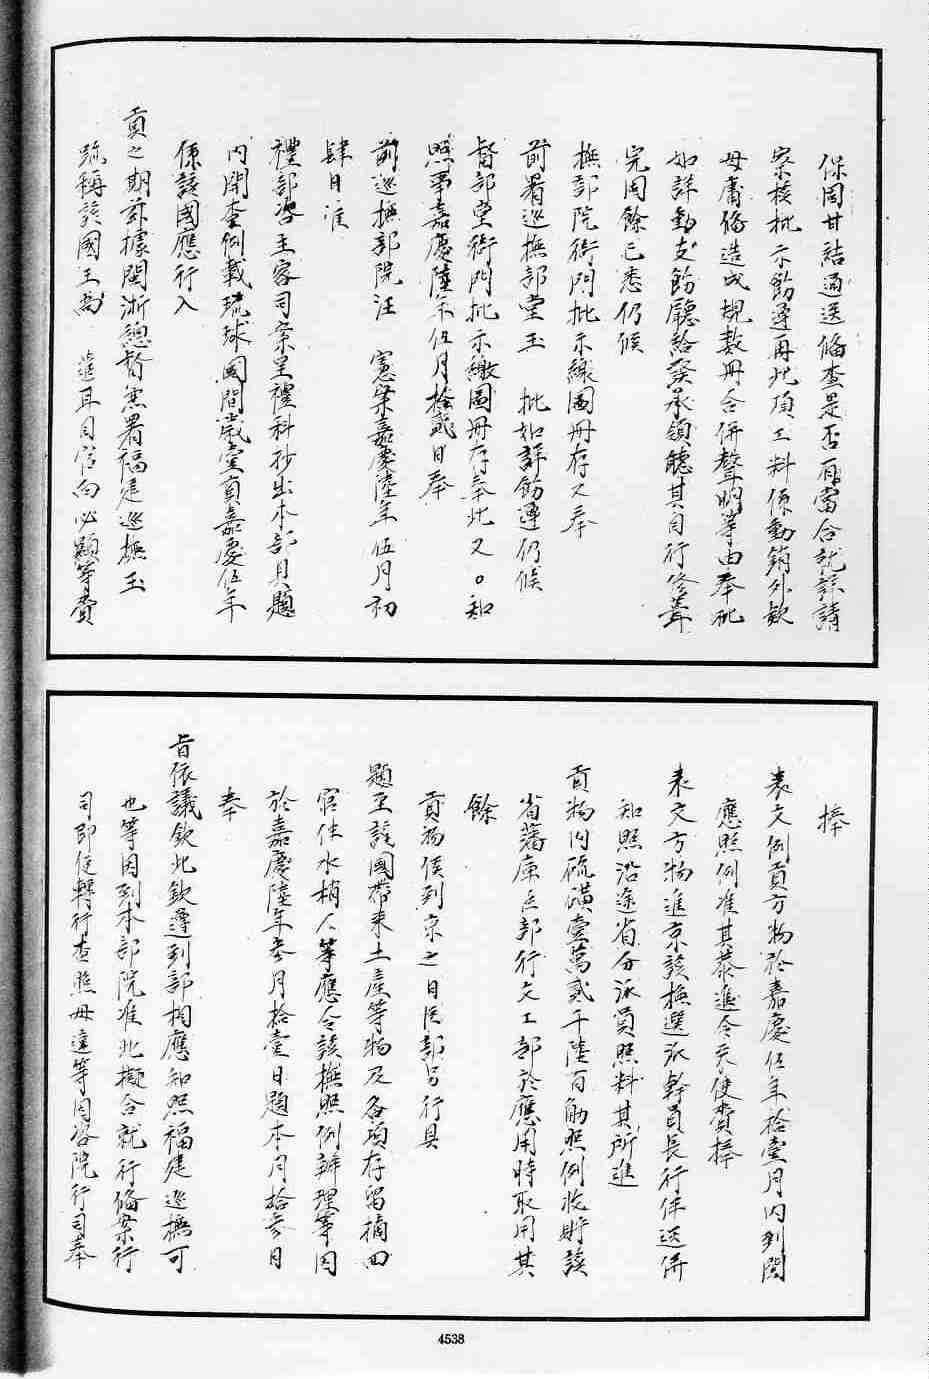 保固甘結通送俻查是否允當合就詳請
察核批示飭遵再此項工料係動銷外欵
毋庸俻造成規數冊合併聲明等由奉批
如詳動支飭廳給發承領聽其自行修葺
完固餘已悉仍候
撫部院衙門批示繳圖冊存又奉
前署巡撫部堂玉　批如詳飭遵仍候
督部堂衙門批示繳圖冊存奉此又。知
照事嘉慶陸年伍月拾貳日奉
前巡撫部院汪　憲案嘉慶陸年伍月初
肆日准
禮部咨主客司案呈禮科抄出本部具題
内開查例載琉球國間歲壹貢嘉慶伍年
係該國應行入
貢之期兹據閩浙總督兼署福建巡撫玉
疏稱該國王尚　遣耳目官向必顯等賫
捧
表文例貢方物於嘉慶伍年拾壹月内到閩
應照例准其恭進令天使賫捧
表文方物進京該撫選派幹員長行伴送併
知照沿途省分派員照料其所進
貢物内硫磺壹萬貳千陸百觔照例收貯該
省藩庫臣部行文工部於應用時取用其
餘
貢物俟到京之日臣部另行具
題至該國帶來土產等物及各項存留摘回
官伴水梢人等應令該撫照例辦理等因
於嘉慶陸年叁月拾壹日題本月拾叁日
奉
旨依議欽此欽遵到部相應知照福建巡撫可
也等因到本部院准此擬合就行俻案行
司即便轉行查照毋違等因咨院行司奉
4538